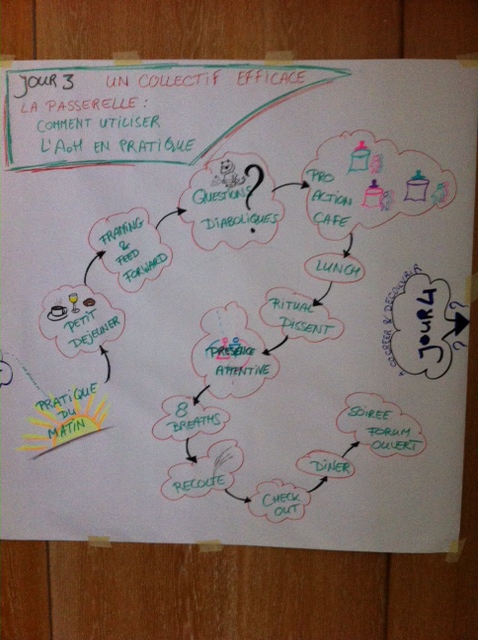 JOUR 3 UN COLLECTIF EFFICACE
LA PASSERELLE :
COMMENT UTILISER
L'AoH EN PRATIQUE
PRATIQUE
DU
MATIN
PETIT
DEJEUNER
FRAMING
& FEED
FORWARD
QUESTIONS
DIABOLIQUES
?
PRO
ACTION
CAFE
LUNCH
RITUAL
DISSENT
PRESENCE
ATTENTIVE
8
BREATHS
RECOLTE
CHECK
OUT
DINER
SOIREE
FORUM
OUVERT
A CO CREER & DECOUVRIR
JOUR 4
?
?